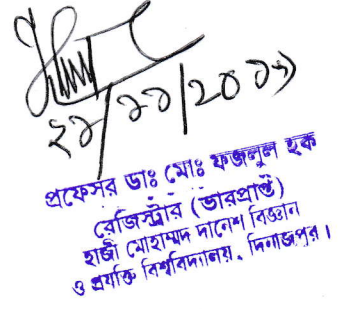 ২১/১১/২০১১
প্রফেসর ডাঃ মোঃ ফজলুল হক
রেজিস্ট্রার (ভারপ্রাপ্ত)
হাজী মোহাম্মদ দানেশ বিজ্ঞান
ও প্রযুক্তি বিশ্ববিদ্যালয়, দিনাজপুর।